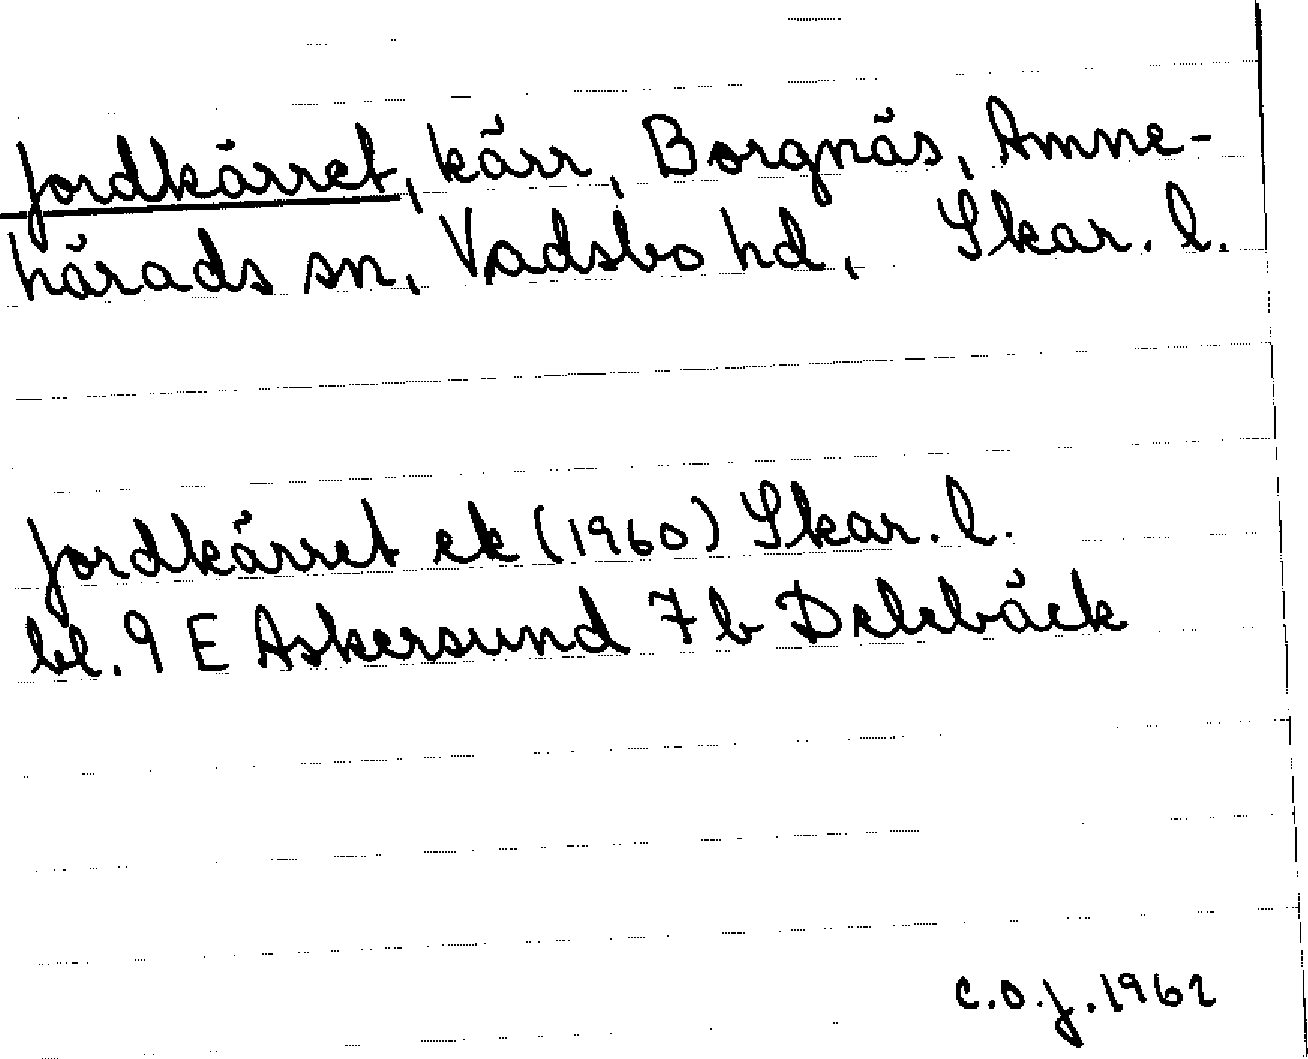 Jordkärret, kärr, Borgnäs, Amne-
härads sn, Vadsbo hd, Skar. l.
Jordkärret ek (1960) Skar. l.
bl. 9 E Askersund 7 b Delebäck
C.O.J. 1962